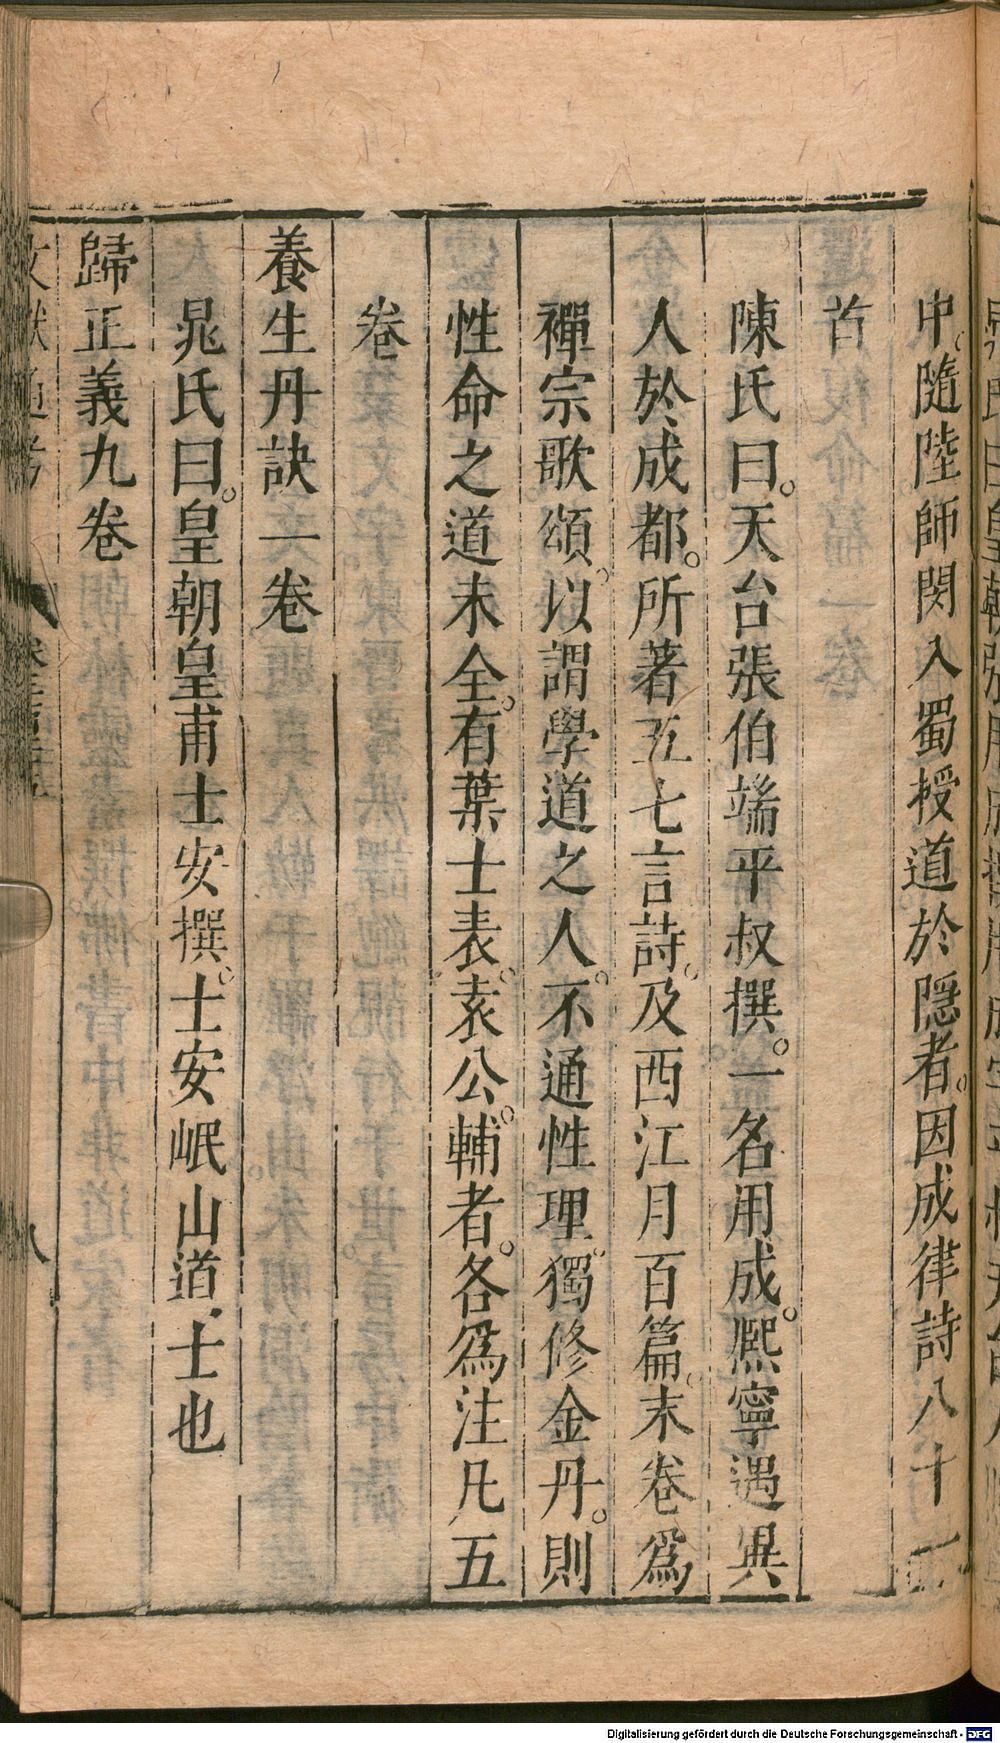 中。隨陸師閔入蜀授道於隱者。因成律詩八十一
首
陳氏曰。天台張伯端平叔撰。一名用成。熙寧遇異
人於成都。所著五七言詩。及西江月百篇。末卷爲
禪宗歌頌。以謂學道之人。不通性理。獨修金丹。則
性命之道未全。有葉士表。袁公輔者。各爲注凡五
卷
養生丹訣一卷
晁氏曰。皇朝皇甫士安撰。士安岷山道士也
歸正義九卷
文獻通考 八
Digitalisierung gefördert durch die Deutsche Forschungsgemeinschaft - DFG